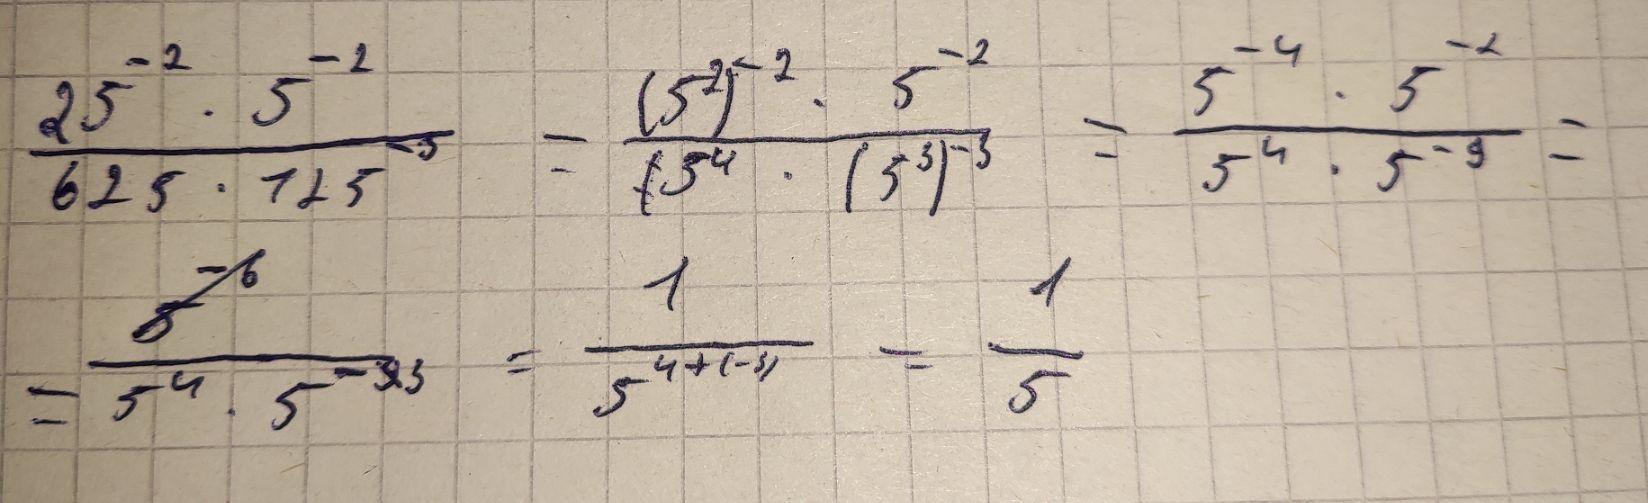 25^-2 · 5^-2 / 625 · 125^-3 = (5^2)^-2 · 5^-2 / (5^4 · (5^3)^-3 = 5^-4 · 5^-2 / 5^4 · 5^-9 =
= 5^-6 / 5^4 · 5^-3 = 1 / 5^4+(-3) = 1 / 5